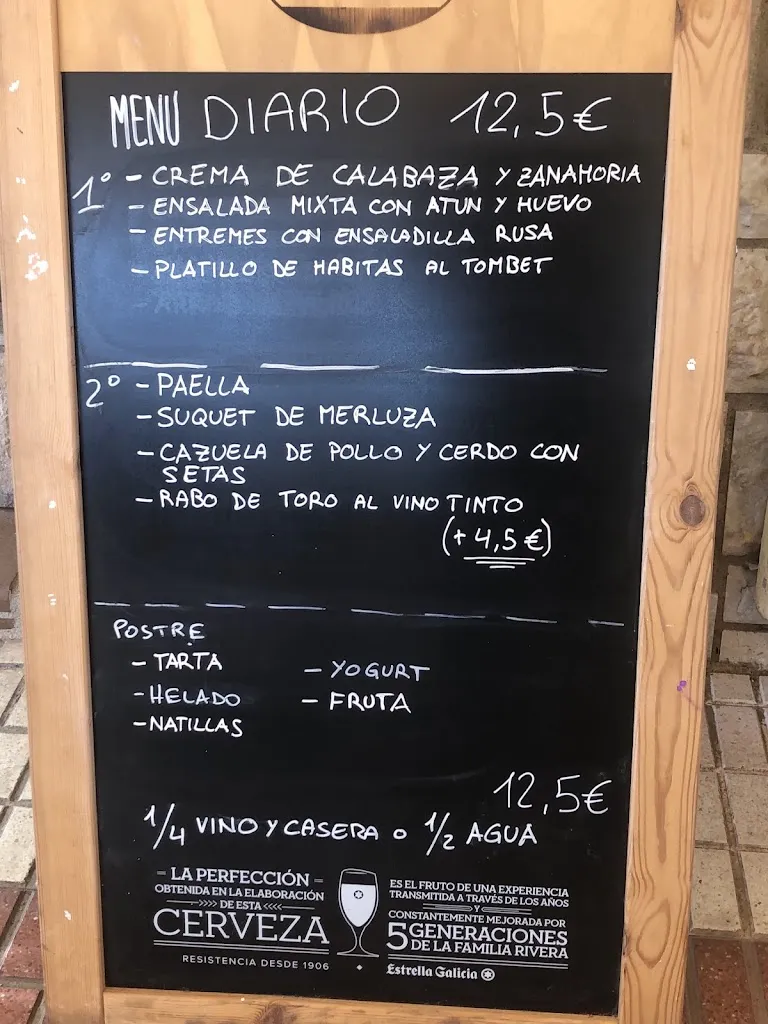 MENU DIARIO 12,5€
1º - CREMA DE CALABAZA Y ZANAHORIA
- ENSALADA MIXTA CON ATUN Y HUEVO
- ENTREMES CON ENSALADILLA RUSA
- PLATILLO DE HABITAS AL TOMBET
2º - PAELLA
- SUQUET DE MERLUZA
- CAZUELA DE POLLO Y CERDO CON
SETAS
- RABO DE TORO AL VINO TINTO
(+ 4,5€)
POSTRE
- TARTA
- HELADO
- NATILLAS
- YOGURT
- FRUTA
12,5€
1/4 VINO Y CASERA o 1/2 AGUA
LA PERFECCIÓN
OBTENIDA EN LA ELABORACIÓN
DE ESTA
CERVEZA
RESISTENCIA DESDE 1906
ES EL FRUTO DE UNA EXPERIENCIA
TRANSMITIDA A TRAVÉS DE LOS AÑOS
Y
CONSTANTEMENTE MEJORADA POR
5 GENERACIONES
DE LA FAMILIA RIVERA
Estrella Galicia